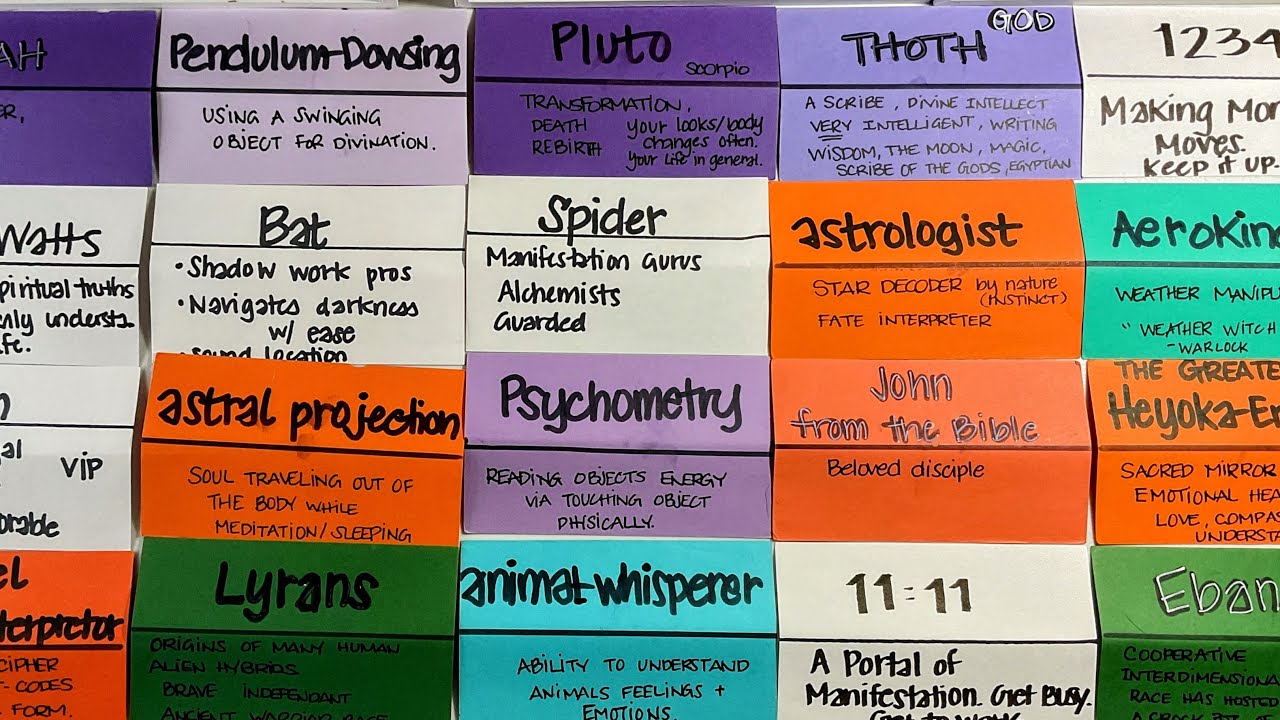 AH
ER,
Pendulum-Dowsing
USING A SWINGING
OBJECT FOR DIVINATION.
Pluto
Scorpio
TRANSFORMATION,
DEATH
REBIRTH
your looks/body
changes often.
your life in general.
THOTH GOD
A SCRIBE, DIVINE INTELLECT
VERY INTELLIGENT, WRITING
WISDOM, THE MOON, MAGIC,
SCRIBE OF THE GODS, EGYPTIAN
1234
Making Mon
Moves.
Keep it up.
Watts
piritual truths
nly understa
fe.
Bat
• Shadow work pros
• Navigates darkness
w/ ease
sound location
Spider
Manifestation Gurus
Alchemists
Guarded
astrologist
STAR DECODER by nature
(INSTINCT)
FATE INTERPRETER
AeroKin
WEATHER MANIPU
"WEATHER WITCH
-WARLOCK
al VIP
orable
astral projection
SOUL TRAVELING OUT OF
THE BODY WHILE
MEDITATION/SLEEPING
Psychometry
READING OBJECTS ENERGY
VIA TOUCHING OBJECT
PHYSICALLY.
John
from the Bible
Beloved disciple
THE GREATE
Heyoka-E
SACRED MIRROR
EMOTIONAL HEA
LOVE, COMPAS
UNDERSTA
el
terpretor
CIPHER
T-CODES
FORM.
Lyrans
ORIGINS OF MANY HUMAN
ALIEN HYBRIDS
BRAVE INDEPENDANT
ANCIENT WARRIOR RACE
animal-whisperer
ABILITY TO UNDERSTAND
ANIMALS FEELINGS +
EMOTIONS.
11:11
A Portal of
Manifestation. Get Busy.
Get to work
Eban
COOPERATIVE
INTERDIMENSIONA
RACE HAS HOSTED